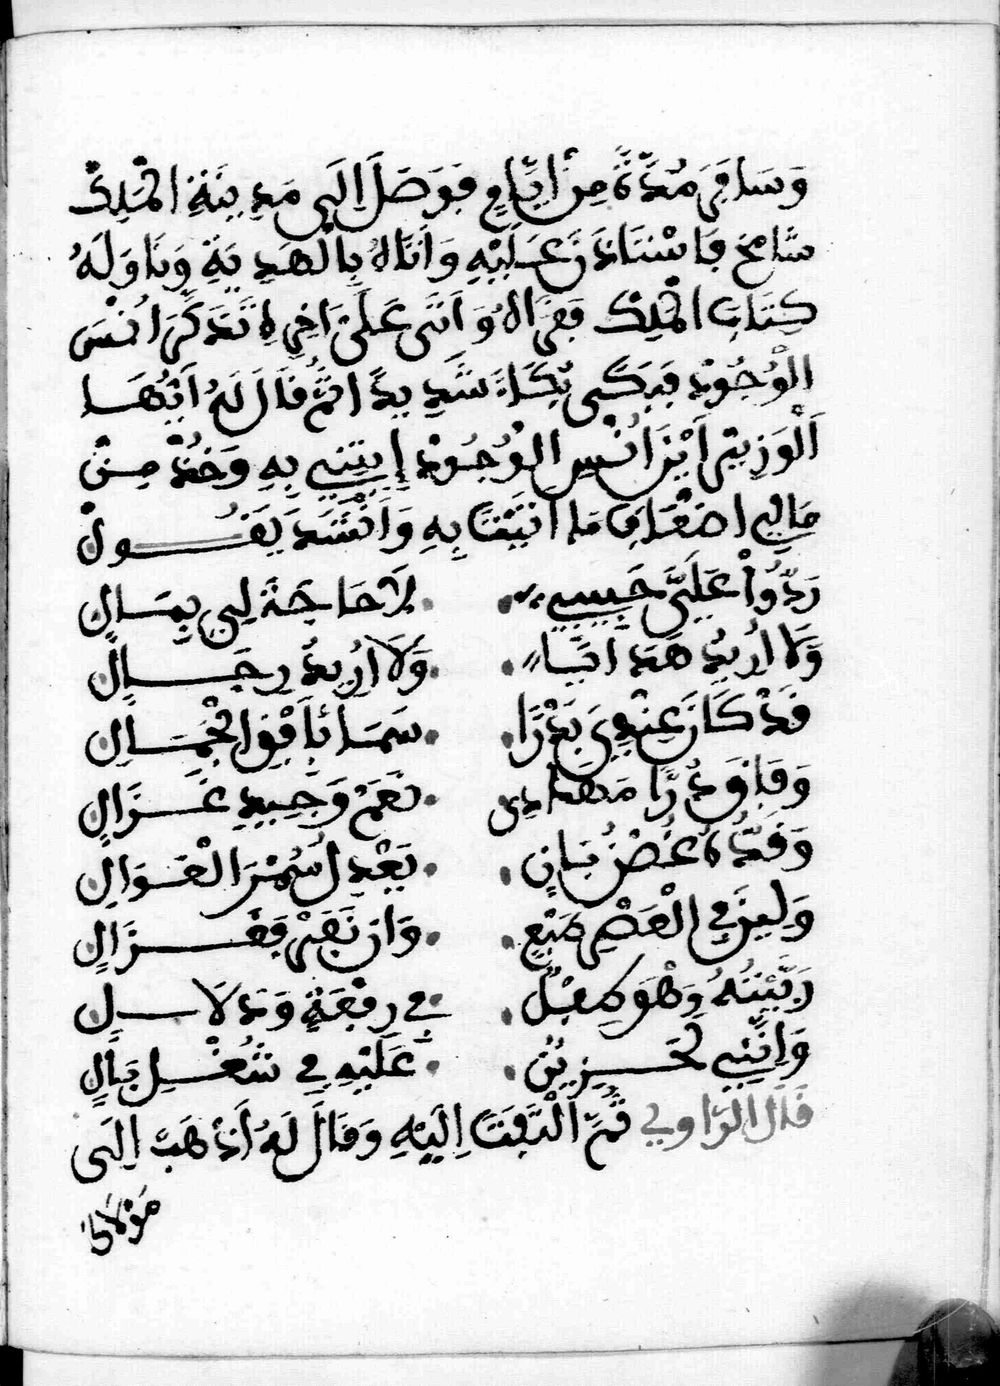 وَسَافَرَ مُدَّةً مِنْ اَيَّامٍ فَوَصَلَ اِلَى مَدِينَةِ الْمَلِكْ
شَامِخْ فَاسْتَاذَنَ عَلَيْهِ وَاَتَاهُ بِالْهَدِيَةِ وَنَاوَلَهُ
كِتَابَ الْمَلِكْ فَقَرَاهُ وَاَتَى عَلَى اَخِرِهِ تَذَكَّرَ اُنْسَ
الْوُجُودْ فَبَكَى بُكَاءً شَدِيدًا ثُمَّ قَالَ لَهُ اَيُّهَا
اَلْوَزِيرْ اَيْنَ اُنْسِ الْوُجُودْ اِيتِنِي بِهِ وَخُذْ مِنْ
مَالِي اضْعَافَ مَا اَتَيْتَنَا بِهِ وَاَنْشَدَ يَقُولْ
رُدُّوا عَلَيَّ حَبِيبِي لَا حَاجَةَ لِي بِمَالِ
وَلَا اُرِيدُ هَدَايَا وَلَا اُرِيدُ رِجَالِ
قَدْ كَانَ عِنْدِي بَدْرًا سَمَا بِاُفْقِ الْجَمَالِ
وَفَاقَ دُرًّا نَعَمْ وَجِيدِ غَزَالِ
وَقَدُّهُ غُصْنُ بَانٍ يَعْدِلُ سُمْرَ الْعَوَالِ
وَلِينَ فِي وَاِنْ نَفَرْ فَغَزَالِ
رَبَّيْتُهُ وَهْوَ طِفْلٌ فِي رِفْعَةٍ وَدَلَالِ
وَاِنَّنِي لَحَزِينٌ عَلَيْهِ فِي شُغْلِ بَالِ
قَالَ الرَّاوِي ثُمَّ الْتَفَتَ اِلَيْهِ وَقَالَ لَهُ اَذْهَبَ اِلَى
مَوْلَاكَ